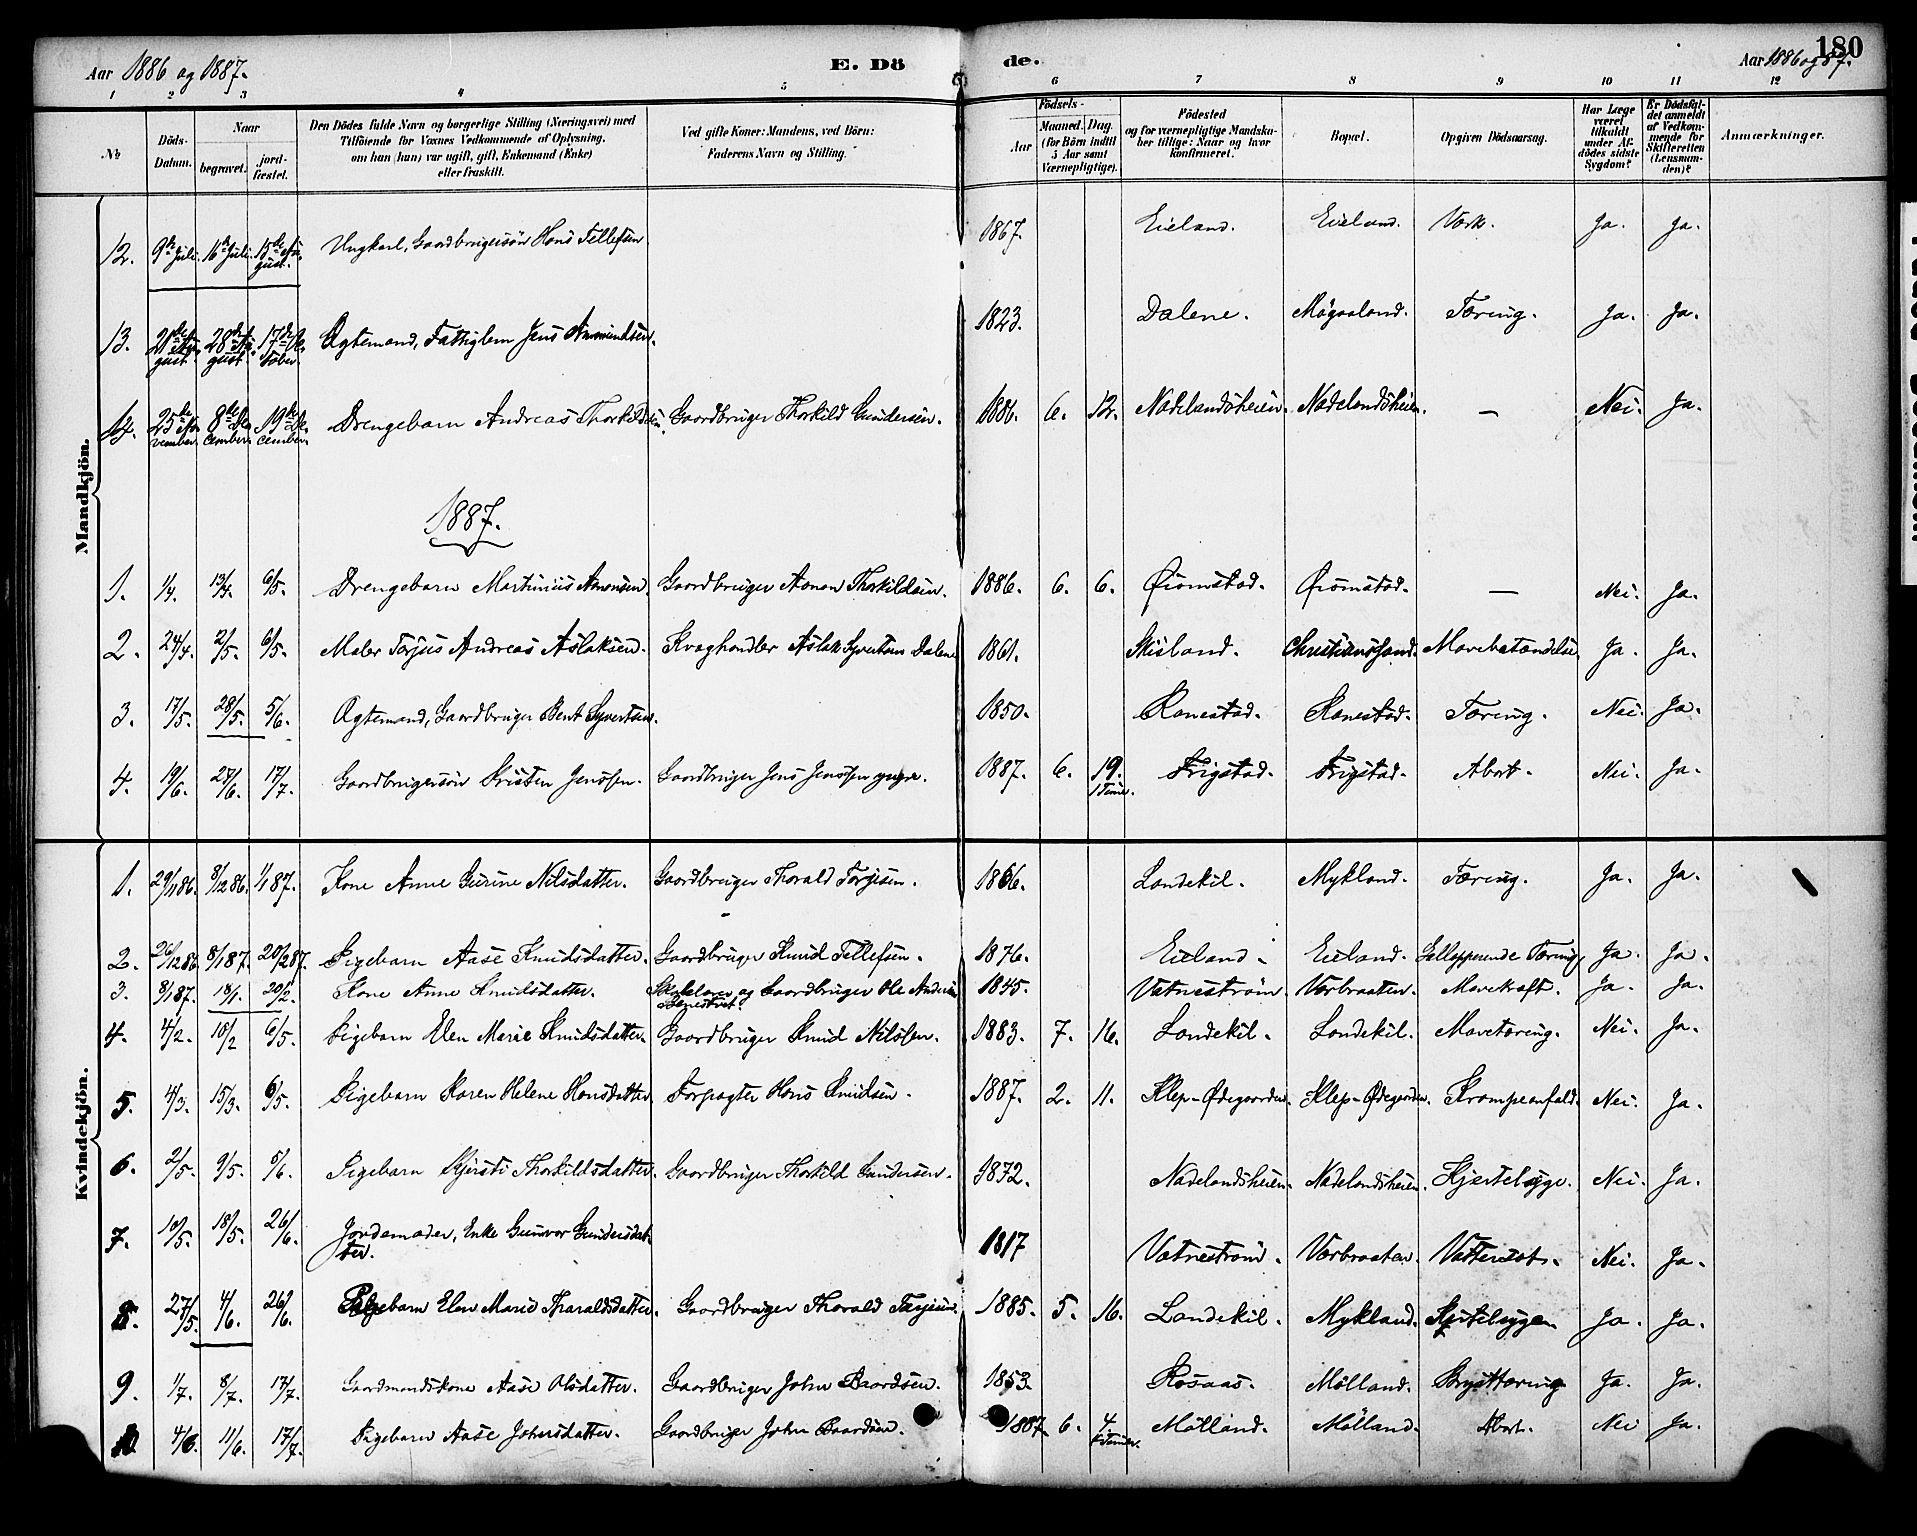 Aar 1886 og 1887.
E. Dö
de.
180
Aar 1886 og 87.
1 2 3 4 5 6 7 8 9 10 11 12
No
Döds-Datum.
Naar
begravet.
jord-fæstet.
Den Dödes fulde Navn og borgerlige Stilling (Næringsvei) med
Tilföiende for Voxnes Vedkommende af Oplysning,
om han (hun) var ugift, gift, Enkemand (Enke)
eller fraskilt.
Ved gifte Koner: Mandens, ved Börn:
Faderens Navn og Stilling.
Födsels-
Aar
Maaned. Dag.
(for Börn indtil
5 Aar samt
Værnepligtige).
Födested
og for værnepligtige Mandska-
ber tillige: Naar og hvor
konfirmeret.
Bopæl.
Opgiven Dödsaarsag.
Har Læge
været
tilkaldt
under Af-
dödes sidste
Sygdom?
Er Dödsfal-
det anmeldt
af Vedkom-
mende for
Skifteretten
(Lensman-
den)?
Anmærkninger.
Mandkjön.
12. 9de Juli. 16de Juli. 15de August. Ungkarl, Gaardbrugersön Hans Tellefsen 1867. Eieland. Eieland. Værk. Ja. Ja.
13. 21de August. 28de August. 17de Oktober. Ægtemand, Fattiglem Jens Aanundsen. 1823. Dalene. Mögaaland. Tæring. Ja. Ja.
14. 25de November. 8de December. 19de December. Drengebarn Andreas Thorkildsen. Gaardbruger Thorkild Gundersen. 1886. 6. 12. Nadelandsheien. Nadelandsheien. — Nei. Ja.
1887.
1. 1/4. 13/4. 6/5. Drengebarn Martinius Aanonsen. Gaardbruger Aanon Thorkildsen. 1886. 6. 6. Øiomstad. Øiomstad. — Nei. Ja.
2. 24/4. 2/5. 6/5. Maler Torjus Andreas Aslaksen. Kvæghandler Aslak Syvertsen Dalene 1861. Skisland. Christianssand. Mavebetændelse. Ja. Ja.
3. 17/5. 28/5. 5/6. Ægtemand, Gaardbruger Bent Syvertsen. 1850. Ronestad. Ronestad. Tæring. Nei. Ja.
4. 19/6. 27/6. 17/7. Gaardbrugersön Kristen Jenssen. Gaardbruger Jens Jenssen yngre. 1887. 6. 19. 1 Time. Frigstad. Frigstad. Abort. Nei. Ja.
Kvindekjön.
1. 29/11 86. 8/12 86. 1/1 87. Kone Anne Gurine Nilsdatter. Gaardbruger Tharald Torjesen. 1866. Landekil. Mykland. Tæring. Ja. Ja.
2. 26/12 86. 8/1 87. 20/2 87. Pigebarn Aase Knudsdatter. Gaardbruger Knud Tellefsen. 1876. Eieland. Eieland. Gallopperende Tæring. Ja. Ja.
3. 8/1 87. 18/1. 20/2. Kone Anne Knudsdatter. Skolelærer og Gaardbruger Ole Andersen 1845. Vatneström. Vorbraaten. Mavekræft. Ja. Ja.
4. 4/2. 10/2 6/5. Pigebarn Elen Marie Knudsdatter. Gaardbruger Knud Nilssen. 1883. 7. 16. Landekil. Landekil. Mavetæring. Nei. Ja.
5. 4/3. 15/3. 6/5. Pigebarn Karen Helene Hansdatter. Forpagter Hans Knudsen. 1887. 2. 11. Klep-Ødegaarden. Klep-Ødegaarden. Krampeanfald. Nei. Ja.
6. 2/5. 9/5. 5/6. Pigebarn Kjersti Thorkildsdatter. Gaardbruger Thorkild Gundersen. 1872. Nadelandsheien. Nadelandsheien. Hjertesyge. Nei. Ja.
7. 10/5. 18/5. 26/6. Jordemoder, Enke Gunvor Gundersdatter. 1817 Vatneström. Vorbraaten. Vattersot. Nei. Ja.
8. 27/5. 4/6. 26/6. Pigebarn Elen Marie Tharaldsdatter. Gaardbruger Tharald Torjesen. 1885. 5. 16. Landekil. Mykland. Ja. Ja.
9. 1/7. 8/7. 17/7. Gaardmandskone Aase Olsdatter. Gaardbruger John Baardsen. 1853. Rosaas. Mölland. Brysttæring. Ja. Ja.
10. 4/6. 11/6. 17/7. Pigebarn Aase Johnsdatter. Gaardbruger John Baardsen. 1887 6. 4 Mölland. Mölland. Abort. Nei Ja.